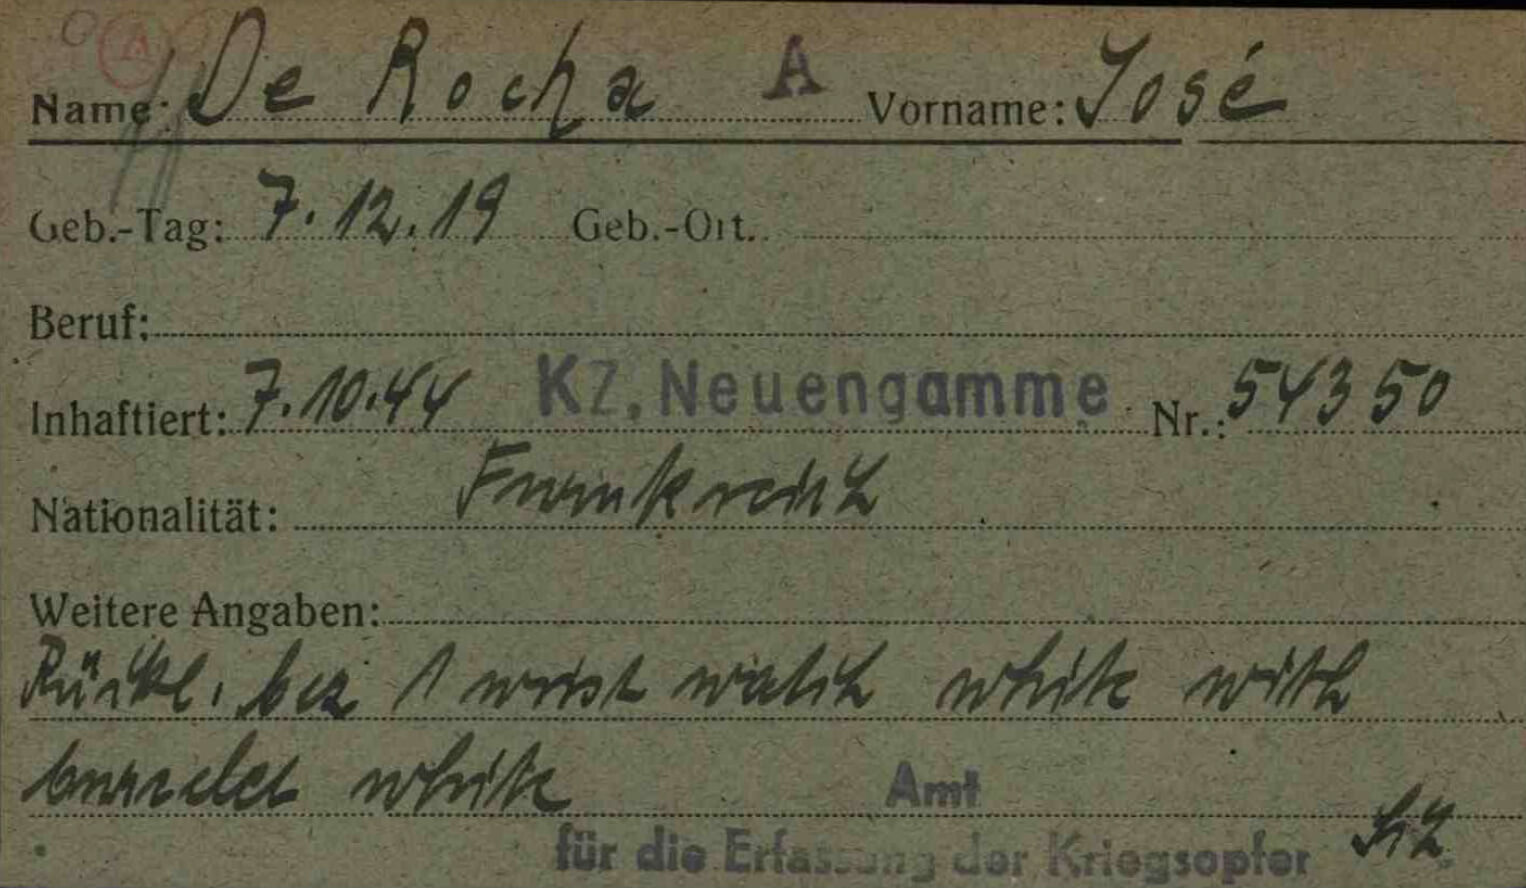 A
Name: De Rocha A Vorname: José
Geb.-Tag: 7.12.19 Geb.-Ort.
Beruf:
Inhaftiert: 7.10.44 KZ. Neuengamme Nr.: 54350
Nationalität: Frankreich
Weitere Angaben:
Rückl. bez 1 wrist watch white with
bracelet white
Amt
für die Erfassung der Kriegsopfer